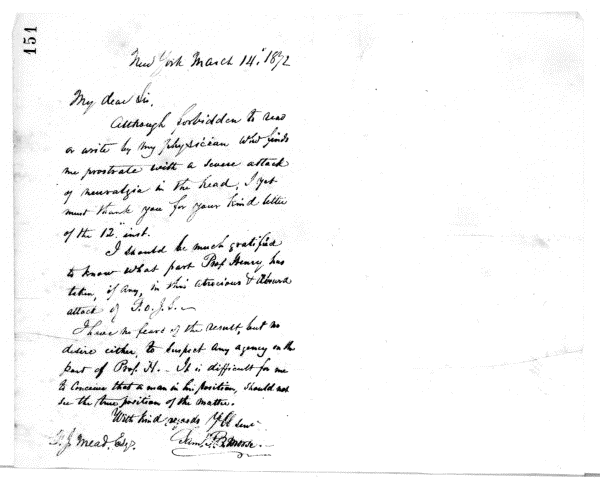 151
New York March 14. 1872
My dear Sir,
Although forbidden to read
or write by my physician who finds
me prostrate with a severe attack
of neuralgia in the head, I yet
must thank you for your kind letter
of the 12" inst.
I should be much gratified
to know what part Prof Henry has
taken, if any, in this atrocious & absurd
attack of F. O. J. S. —
I have no fears of the result, but no
desire either, to suspect any agency on the
part of Prof. H. — It is difficult for me
to conceive that a man in his position, should not
see the true position of the matter.
With kind regards Yr Ob Serv
Saml. F. B. Morse.
F. J. Mead, Esqr.